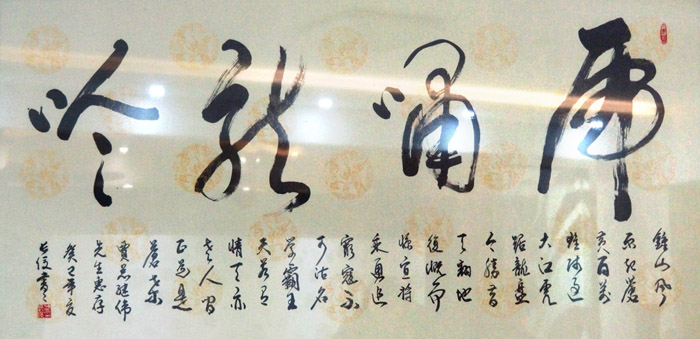 虎嘯龍吟
鍾山風
雨起蒼
黃百萬
雄師過
大江虎
踞龍盤
今勝昔
天翻地
覆慨而
慷宜將
剩勇追
窮寇不
可沽名
學霸王
天若有
情天亦
老人間
正道是
蒼桑
先生惠存
癸巳年夏